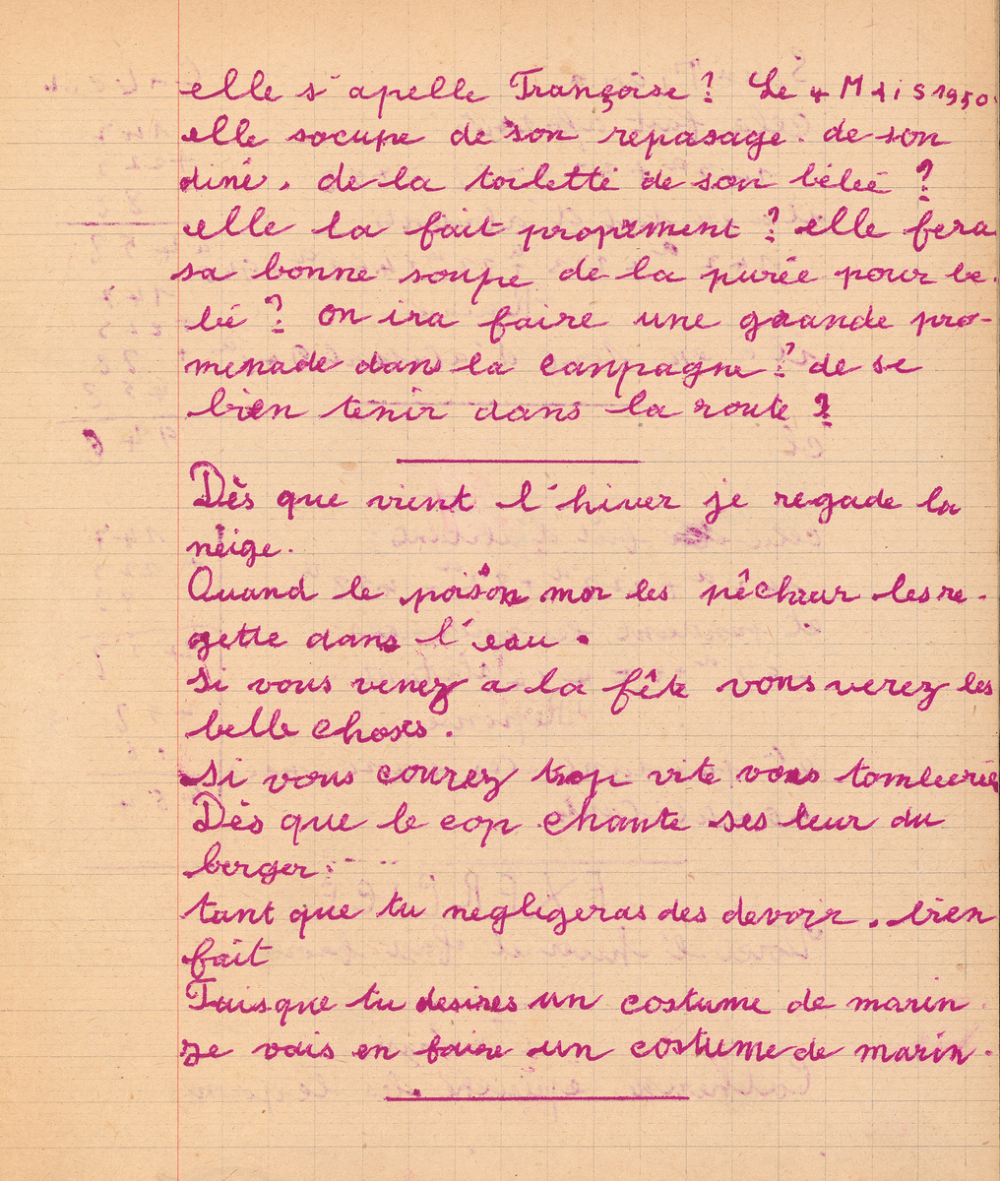 elle s'apelle Françoise ? Le 4 Mais 1950
elle socupe de son repasage. de son
diné, de la toilette de son bébé ?
elle la fait proprement ? elle fera
sa bonne soupe de la purée pour be-
bé ? on ira faire une grande pro-
menade dans la canpagne ? de se
bien tenir dans la route ?
Dès que vient l'hiver je regade la
neige.
Quand le poison mor les pêcheur les re-
gette dans l'eau.
Si vous venez a la fête vous verez les
belle choses.
Si vous courez trop vite vous
Dès que le cop chante ses leur du
berger.
tant que tu negligeras des devoir, bien
fait
Puisque tu desires un costume de marin
je vais en faire un costume de marin.